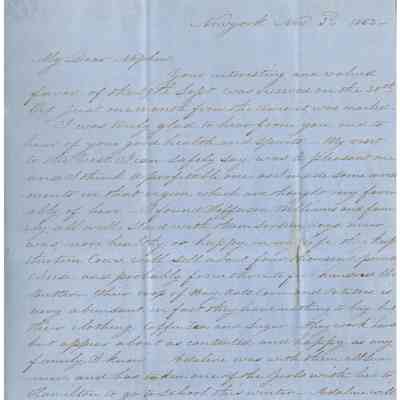 New york Nov 3d 1862
My Dear Nephew
Your interesting and valued
favor of the 9th Sept was received on the 30th
just one month from the time it was mailed
I was truly glad to hear from you and to
hear of your good health and spirits - My visit
to the West I can safely say was a pleasant one
and I think a profitable one as I made some
ments in that region which are thought very favor
ably of here - I found Jefferson Williams and fam
ily all well,
was more healthy or happy in my life
Cows will sell about four thousand pounds
cheese and probably from three to four hundred lbs
butter their crop of Hay Oats Corn and Potatoes is
very abundant in fact they have nothing to buy but
their clothing Coffee tea and Sugar They work hard
but appear about as contented and happy as any
family I know Adaline was with them all
and has taken one of the Girls with her to
Hamilton to go to School this winter - Adaline will